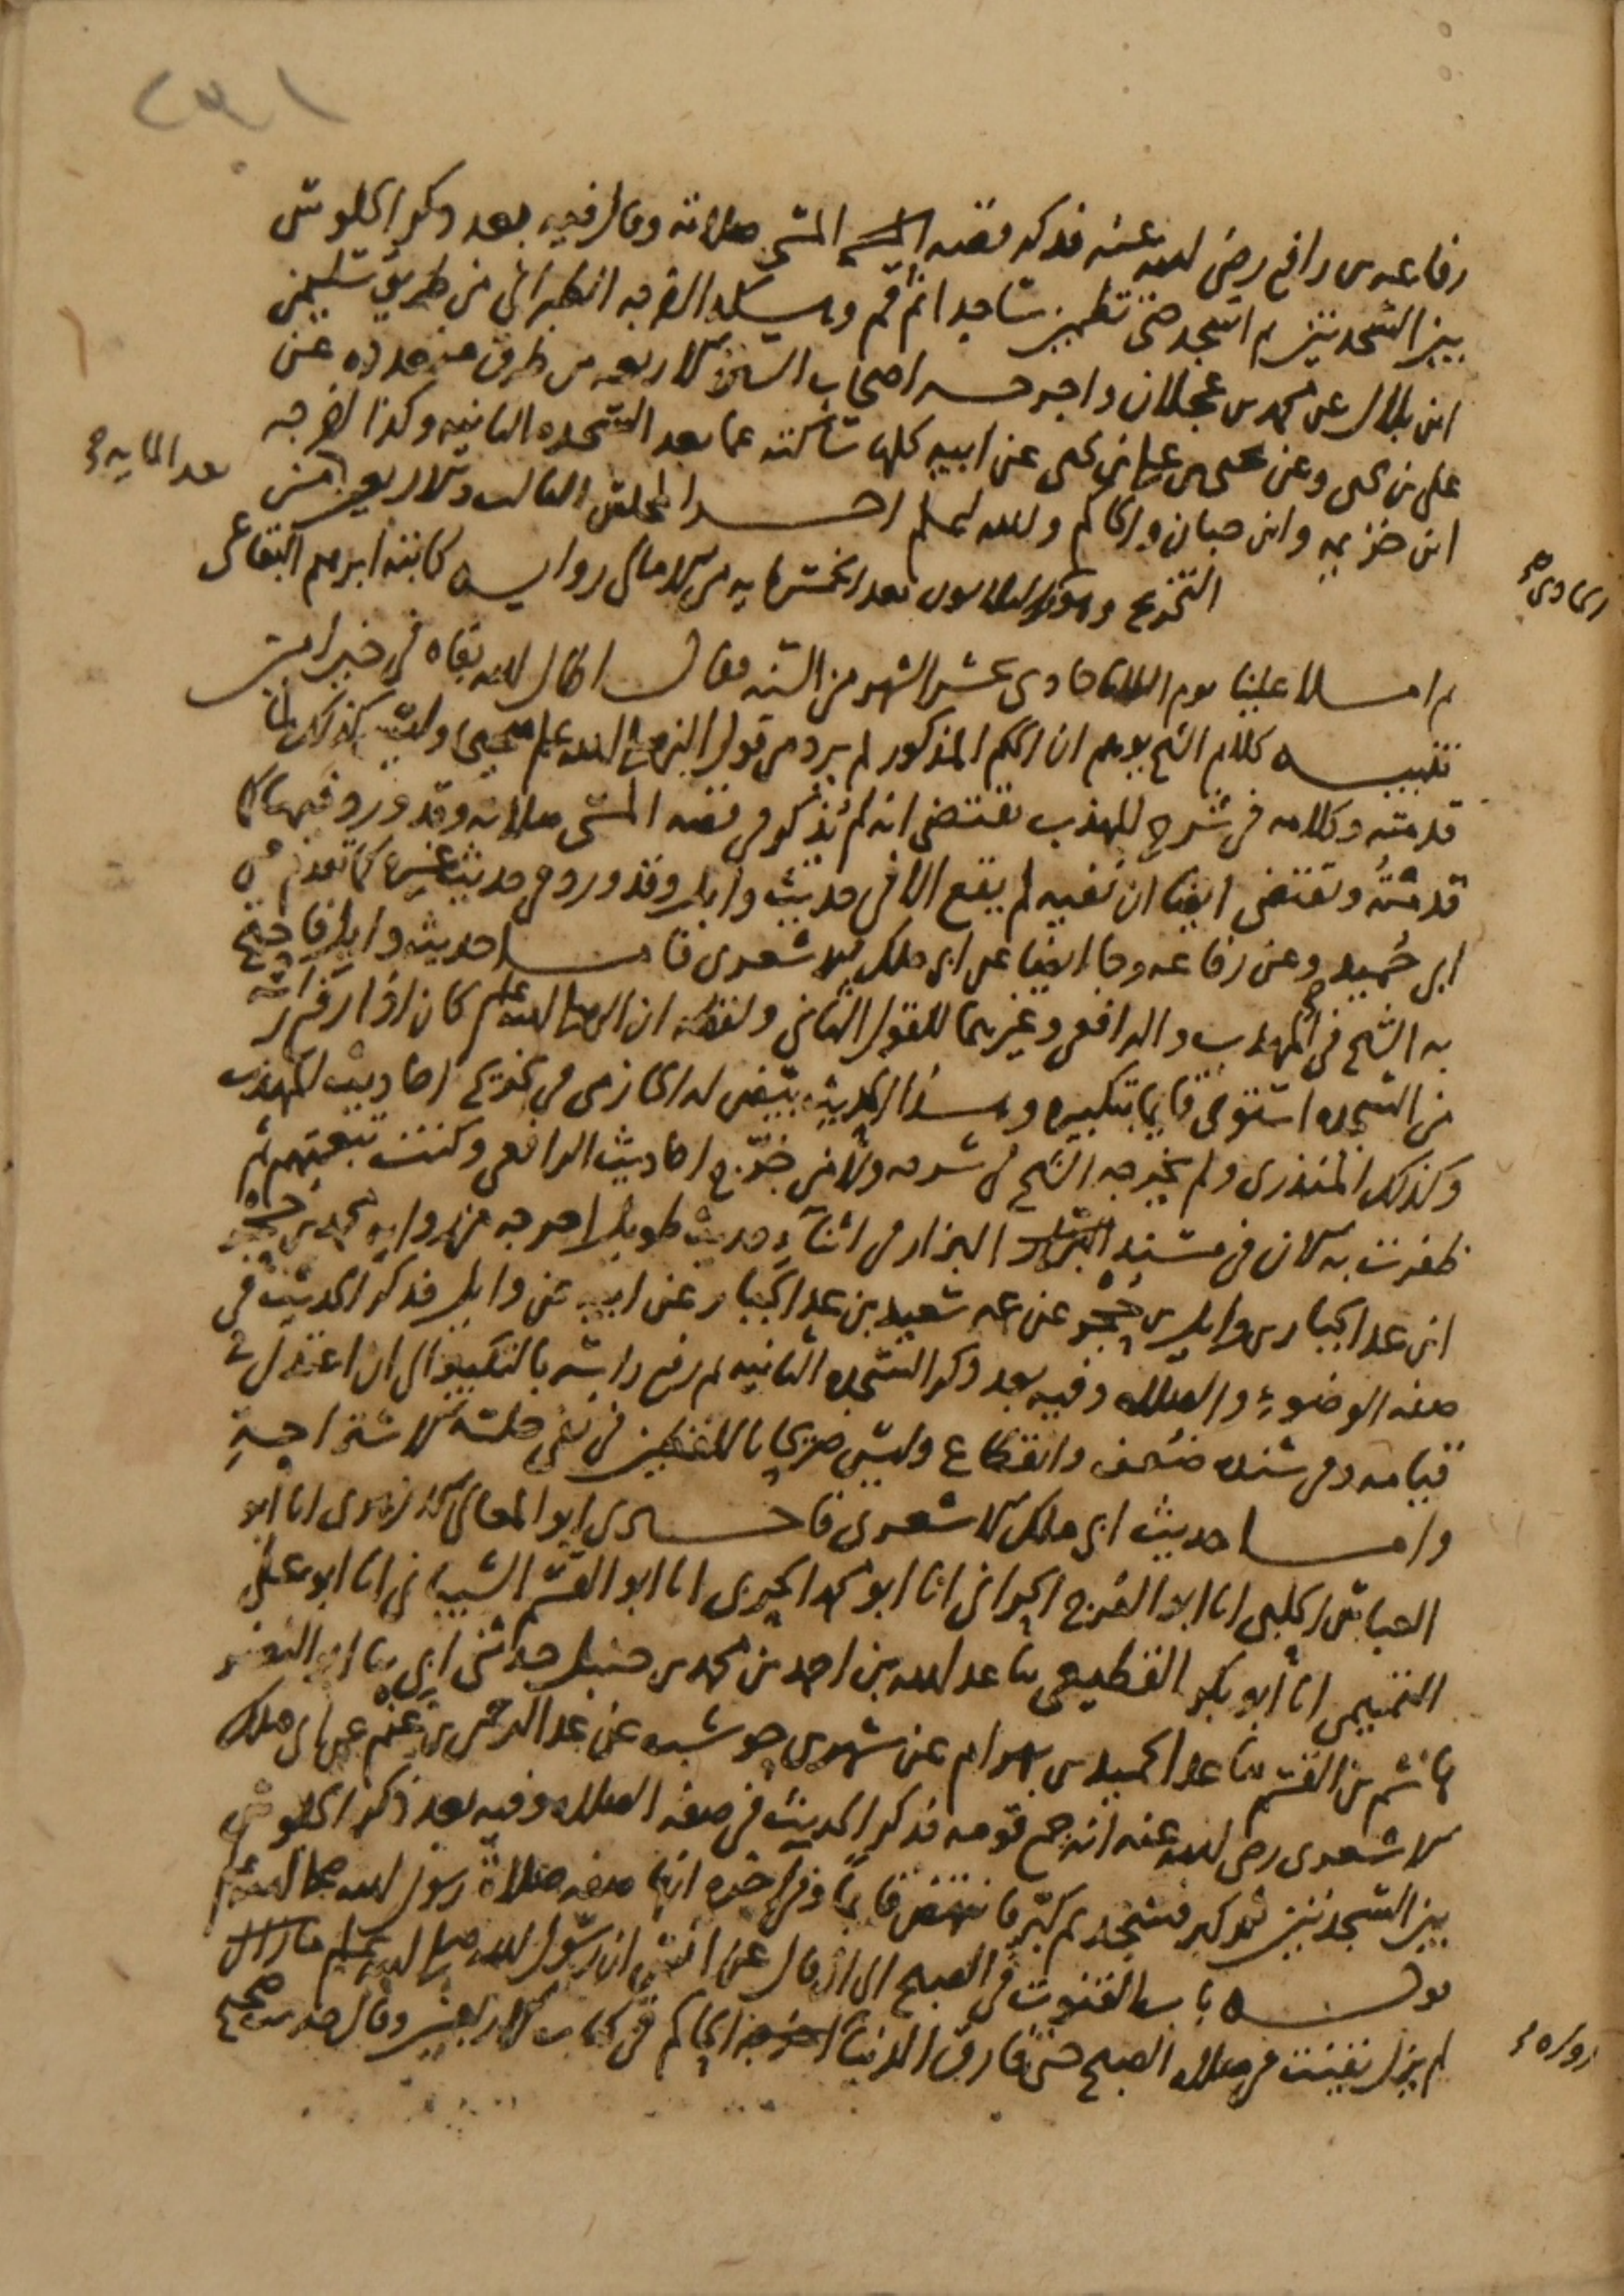 ٢٩١
رفاعة بن رافع رضي الله عنه فذكر قصة المسيء صلاته وقال فيه بعد ذكر الجلوس
بين السجدتين ثم اسجد حتى تطمئن ساجدا ثم قم وهكذا اخرجه الطبراني من طريق سليمن
ابن بلال عن محمد بن عجلان واخرجه اصحاب السنن الاربعة من طرق متعددة عن
علي بن يحيى وعن يحيى بن علي بن يحيى عن ابيه كلها ساكتة عما بعد السجدة الثانية وكذا اخرجه
ابن خزيمة وابن حبان والحاكم والله اعلم اخر المجلس الثالث والاربعين من
بعد المايه صح
التخريج وهو الثلاثون بعد الخمسمايه من الامالي رواية كاتبه ابرهيم البقاعي
الحادي صح
ثم املا علينا يوم الثلاثا حادي عشر الشهر من السنة فقال اطال الله بقاه في خير امين
تنبيه كلام الشيخ يوهم ان الحكم المذكور لم يرد من قول النبي صلى الله عليه وسلم وليس كذلك لما
قدمته وكلامه في شرح المهذب يقتضي انه لم يذكر في قصة المسيء صلاته وقد ورد فيها كما
قدمته ويقتضي ايضا ان نفيه لم يقع الا في حديث وايل وقد ورد في حديث غيره كما تقدم عن
ابي حميد وعن رفاعة وجا ايضا عن ابي ملك الاشعري فاما حديث وايل فاحتج
به الشيخ في المهذب والرافعي وغيرهما للقول الثاني ولفظه ان النبي صلى الله عليه وسلم كان اذا رفع راسه
من السجدة استوى قايما بتكبيرة وهذا الحديث بيض له الحازمي في تخريج احاديث المهذب
وكذلك المنذري ولم يخرجه الشيخ في شرحه ولا من خرج احاديث الرافعي وكنت تبعتهم ثم
ظفرت به الان في مسند البزار في اثناء حديث طويل اخرجه من رواية محمد بن حجر
ابن عبد الجبار بن وايل بن حجر عن عمه سعيد بن عبد الجبار عن ابيه عن وايل فذكر الحديث في
صفة الوضوء والصلاة وفيه بعد ذكر السجدة الثانية ثم رفع راسه بالتكبير الى ان اعتدل في
قيامه وفي سنده ضعف وانقطاع وليس صريحا باللفظين في نفي جلسة الاستراحة
واما حديث ابي ملك الاشعري فاخبرني ابو المعالي الازهري انا ابو
العباس الحلبي انا ابو الفرج الحراني انا ابو محمد الحربي انا ابو القسم الشيباني انا ابو علي
التميمي انا ابو بكر القطيعي ثنا عبد الله بن احمد بن محمد بن حنبل حدثني ابي ثنا ابو النضر
هاشم بن القسم ثنا عبد الحميد بن بهرام عن شهر بن حوشب عن عبد الرحمن بن غنم عن ابي ملك
الاشعري رضي الله عنه انه جمع قومه فذكر الحديث في صفة الصلاة وفيه بعد ذكر الجلوس
بين السجدتين ثم كبر فسجد ثم كبر فانتهض قايما وفي اخره انها صفة صلاة رسول الله صلى الله عليه وسلم
قوله باب القنوت في الصبح الى ان قال عن انس ان رسول الله صلى الله عليه وسلم ما زال
لم يزل يقنت في صلاة الصبح حتى فارق الدنيا اخرجه الحاكم في كتاب الاربعين وقال حديث صحيح
رواه